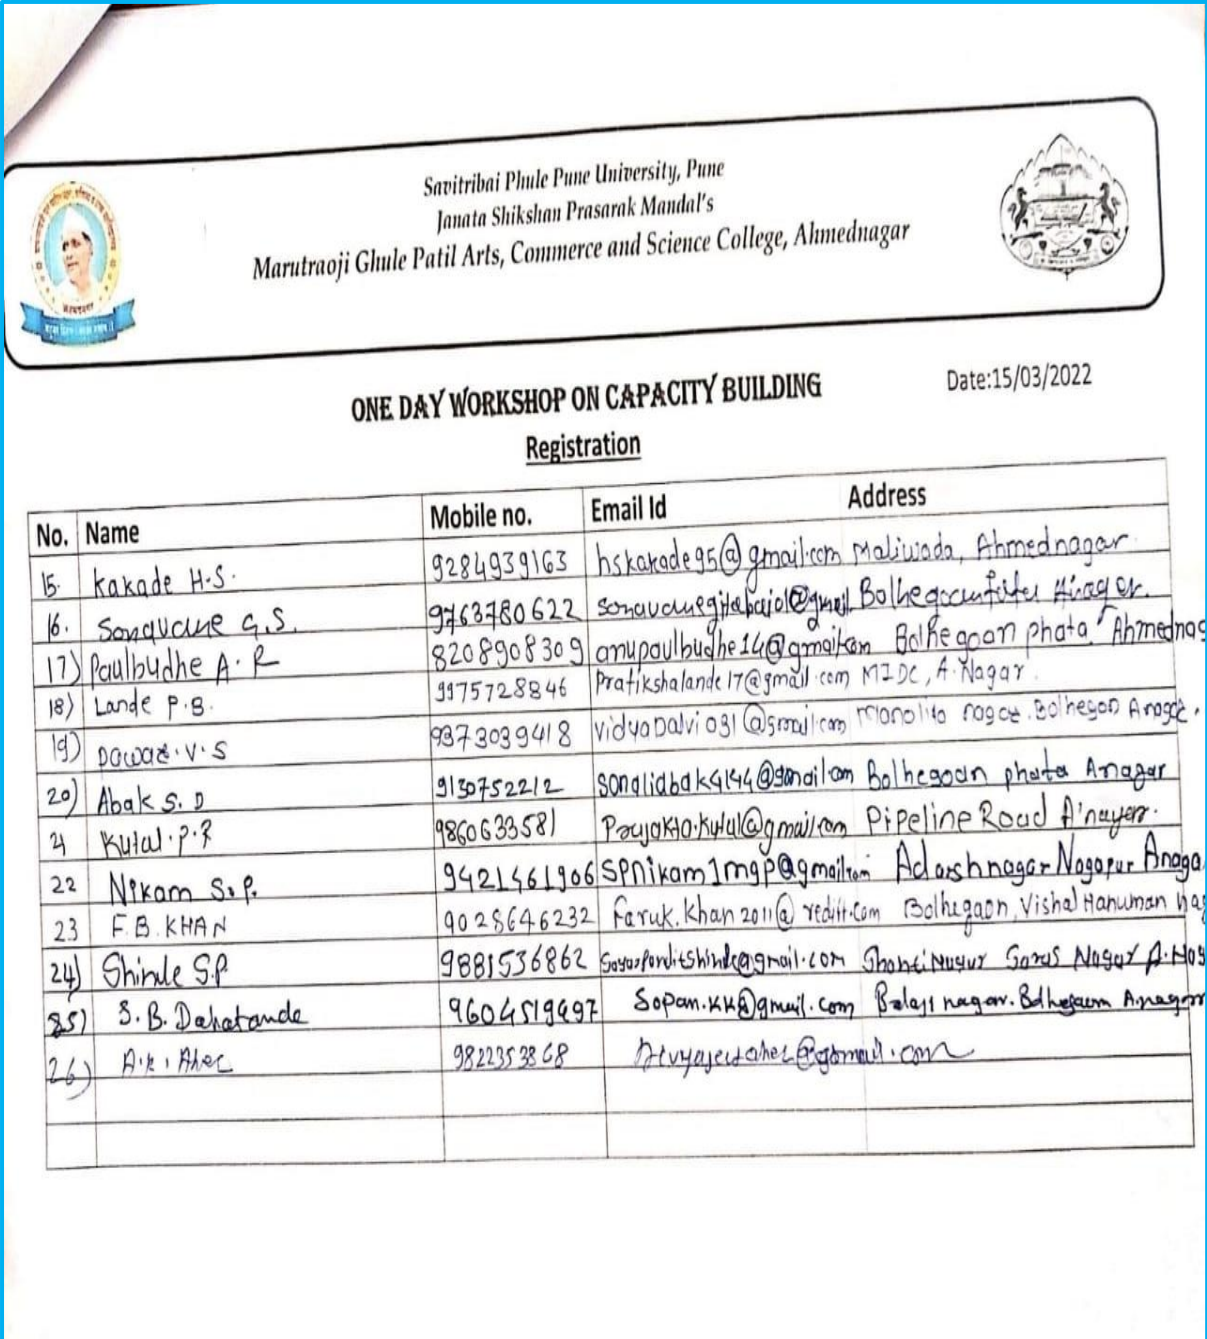 Savitribai Phule Pune University, Pune
Janata Shikshan Prasarak Mandal's
Marutraoji Ghule Patil Arts, Commerce and Science College, Ahmednagar
ONE DAY WORKSHOP ON CAPACITY BUILDING
Date:15/03/2022
Registration
No. Name Mobile no. Email Id Address
15. Kakade H.S. 9284939163 hskakade95@gmail.com Maliwada, Ahmednagar.
16. Sonavane G.S. 9763780622
17) Paulbudhe A.R 8208908309 anupaulbudhe14@gmail.com Bolhegaon phata Ahmednag
18) Lande P.B. 9975728846 Pratikshalande17@gmail.com MIDC, A.Nagar.
19) Pawar.V.S 9373039418 vidyaDalvi031@gmail.com nagar. Bolhegaon Anagar.
20) Abak S.D 9130752212 Bolhegaon phata Anagar
21 Kutal.P.R 9860633581 Pipeline Road A'nager.
22 Nikam S.P. 9421461906 SPnikam1mgp@gmail.com Adarshnagar Nagapur Anaga
23 F.B.KHAN 9028646232 faruk.khan2011@rediff.com Bolhegaon, Vishal Hanuman Nag
24) Shinde S.P 9881536862 Nagar A.Nag
25) S.B. Dahatonde 9604519697 Sopan.KK@gmail.com Balaji nagar. Bolhegaon A.nagar
26) A.K. Aher 9822353868